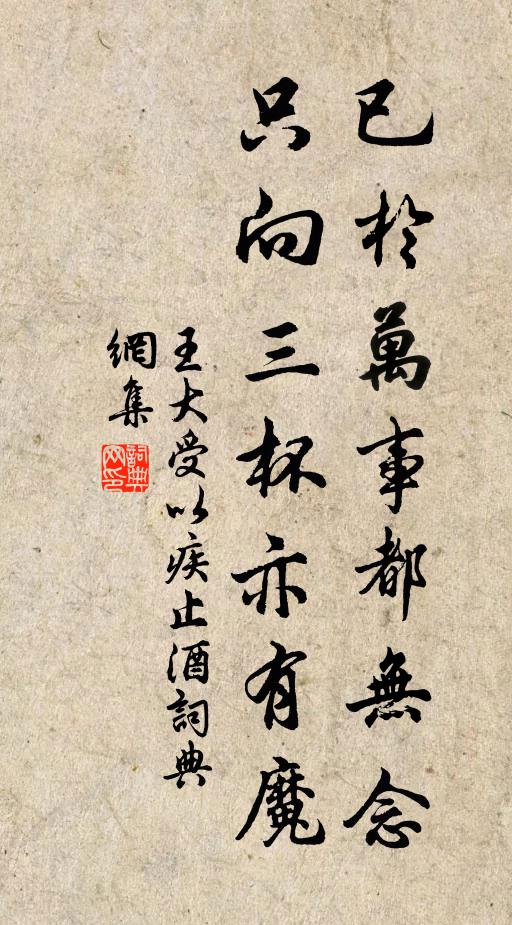 已於萬事都無念
只向三杯亦有魔
王大受以疾止酒詞典
網集
詞典
网印